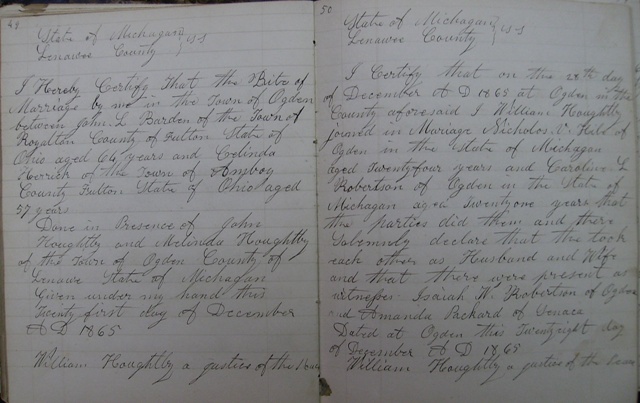 49
State of Michagan } ss
Lenawee County
I Hereby Certify That the Rite of
Marriage by me in the Town of Ogden
between John L Barden of the Town of
Royalton County of Fulton State of
Ohio aged 64 years and
Herrick of the Town of Amboy
County Fulton State of Ohio aged
57 years
Done in Presence of John
Houghtby and Melinda Houghtby
of the Town of Ogden County of
Lenawe State of Michagan
Given under my hand this
Twenty first day of December
A D 1865
William Houghtby a justice of the
50
State of Michagan } ss
Lenawee County
I Certify that on the 28th day
of December A D 1865 at Ogden in the
County aforesaid I William Houghtby
joined in Mariage Nicholos V. of
Ogden in the State of Michagan
aged Twentyfour years and Caroline L
Robertson of Ogden in the State of
Michagan aged Twentyone years that
the parties did them and there
Solemnly declare that the took
each other as Husband and Wife
and that there were present as
witnesses Isaiah W. Robertson of Ogden
and Amanda Packard of
Dated at Ogden this Twentyeight day
of December A D 1865
William Houghtby a justice of the